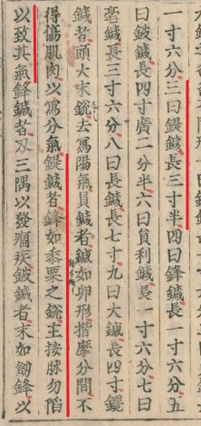 一寸六分三曰鍉鍼長三寸半四曰鋒鍼長一寸六分五
曰鈹鍼長四寸廣二分半六曰員利鍼長一寸六分七曰
毫鍼長三寸六分八曰長鍼長七寸九曰大鍼長四寸鑱
鍼者頭大末銳去寫陽氣員鍼者鍼如卵形揩摩分間不
得傷肌肉以寫分氣鍉鍼者鋒如黍粟之銳主按脉勿陷
以致其氣鋒鍼者刃三隅以發痼疾鈹鍼者末如劒鋒以